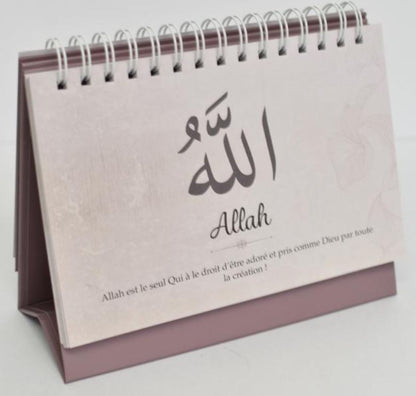 اللَّهُ
Allah
Allah est le seul Qui à le droit d'être adoré et pris comme Dieu par toute
la création !